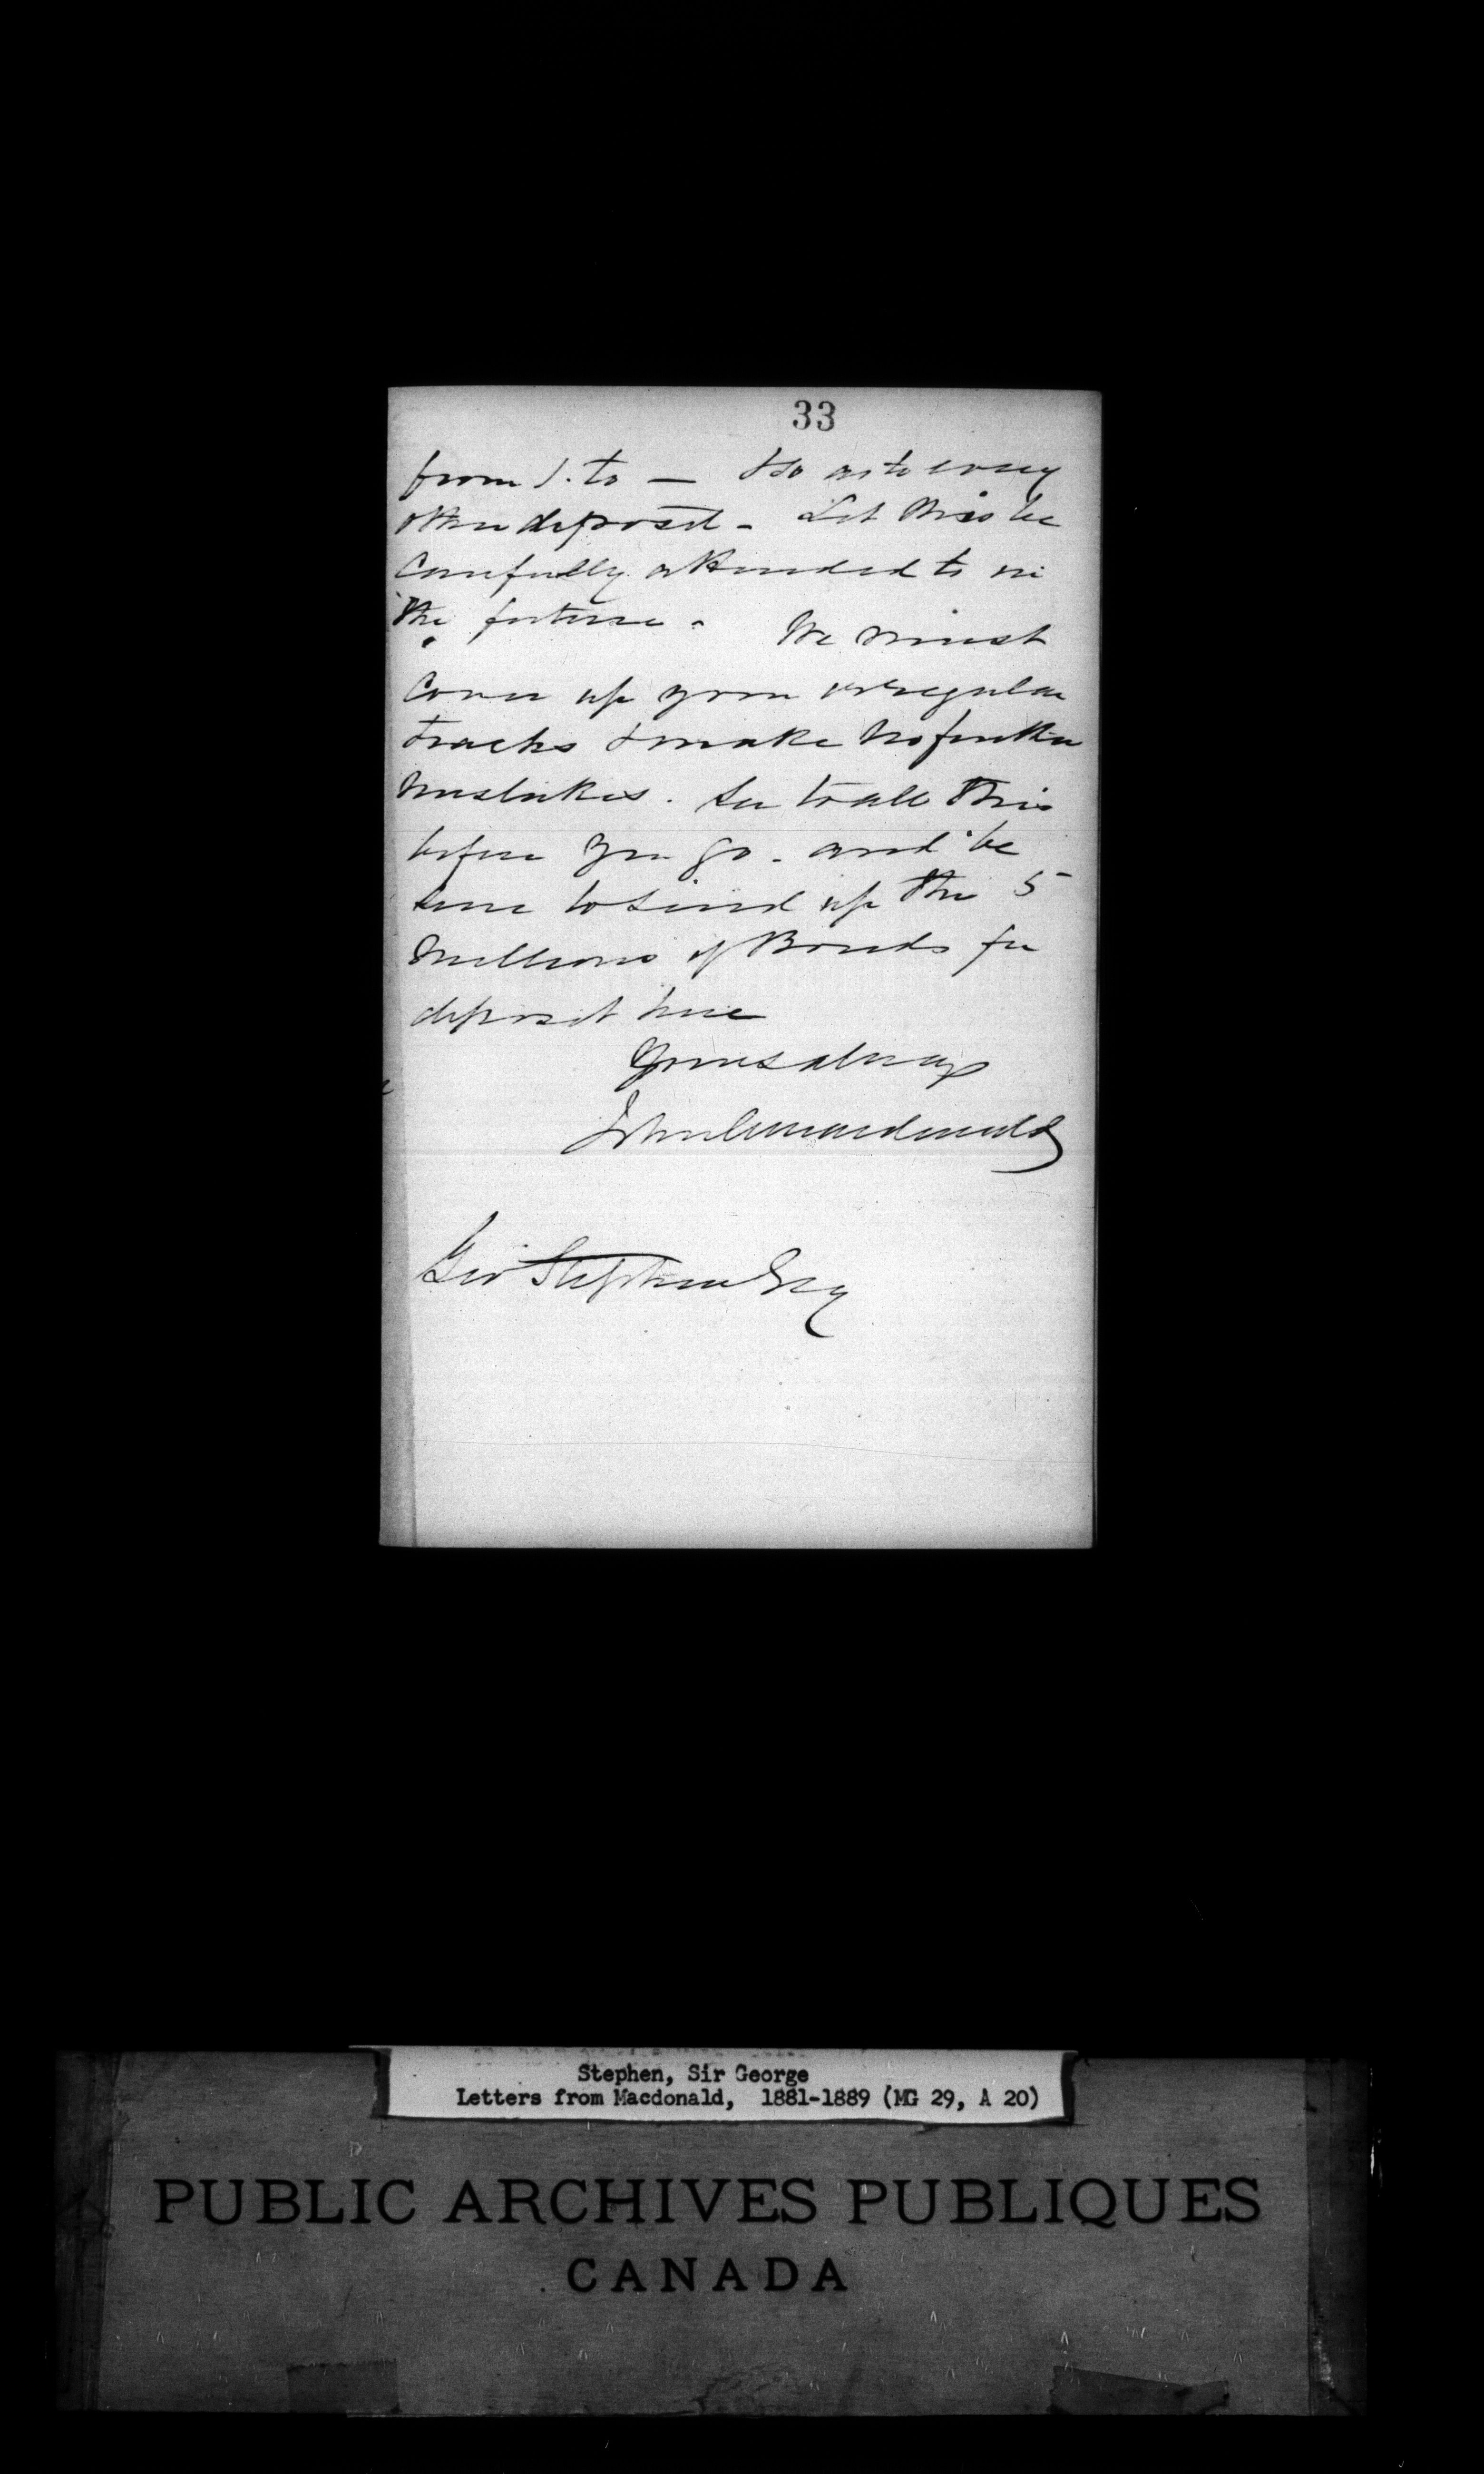 33
from 1. to — & so as to every
other deposit - Let this be
Carefully attended to in
the future - We must
Cover up your irregular
tracks & make no further
mistakes. See to all this
before you go - and be
sure to send up the 5
Millions of Bonds for
deposit here
Yours always
John A Macdonald
Geo Stephen Esq
Stephen, Sir George
Letters from Macdonald, 1881-1889 (MG 29, A 20)
PUBLIC ARCHIVES PUBLIQUES
CANADA